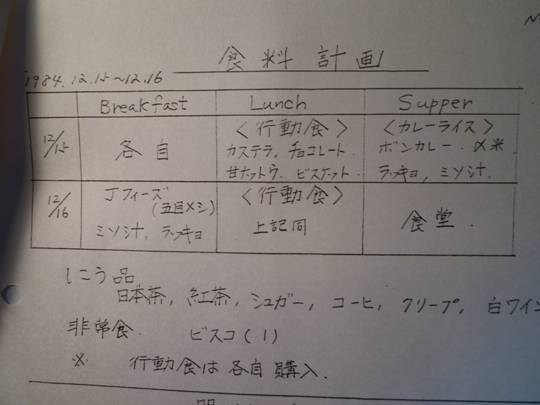 食料計画
1984.12.15~12.16
Breakfast Lunch Supper
12/15 各自 <行動食> <カレーライス>
カステラ、チョコレート ボンカレー、α米
甘ナットウ、ビスケット ラッキョ、ミソ汁、
12/16 Jフィーズ <行動食> 食堂
(五目メシ)
ミソ汁、ラッキョ 上記同
しこう品
日本茶, 紅茶, シュガー, コーヒ, クリープ, 白ワイン
非常食 ビスコ(1)
※ 行動食は各自購入.